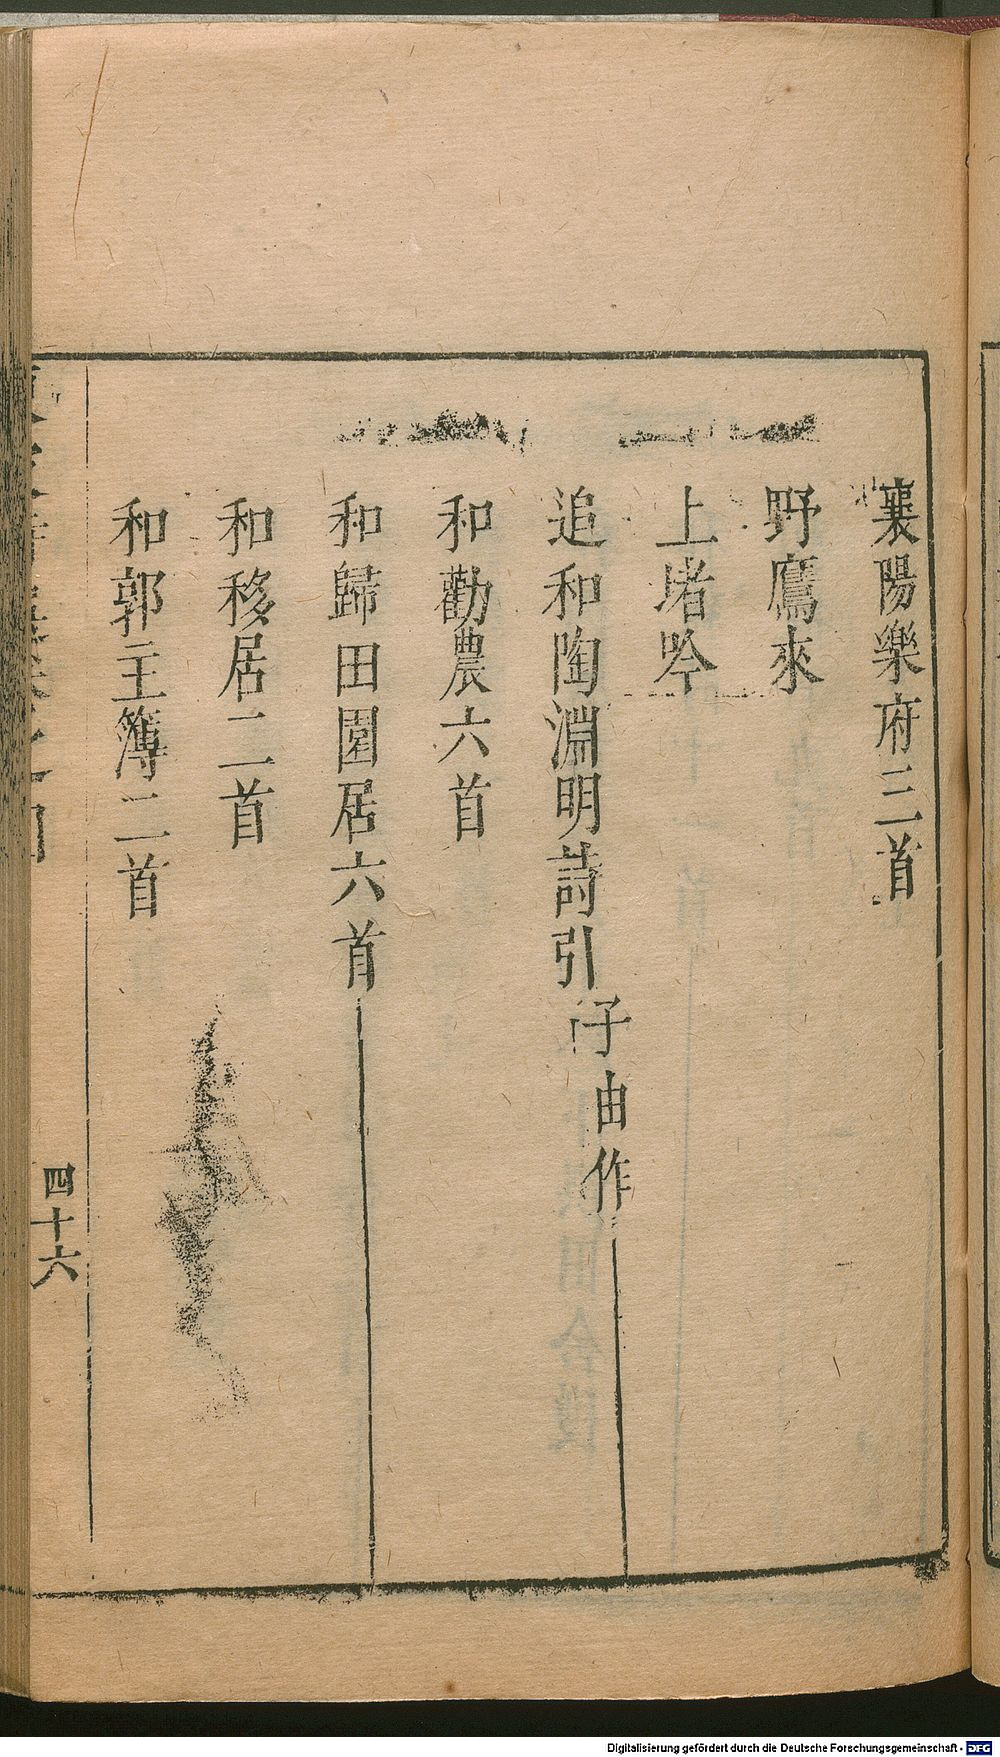 襄陽樂府三首
野鷹來
上堵吟
追和陶淵明詩引子由作
和勸農六首
和歸田園居六首
和移居二首
和郭主簿二首
四十六
Digitalisierung gefördert durch die Deutsche Forschungsgemeinschaft - DFG